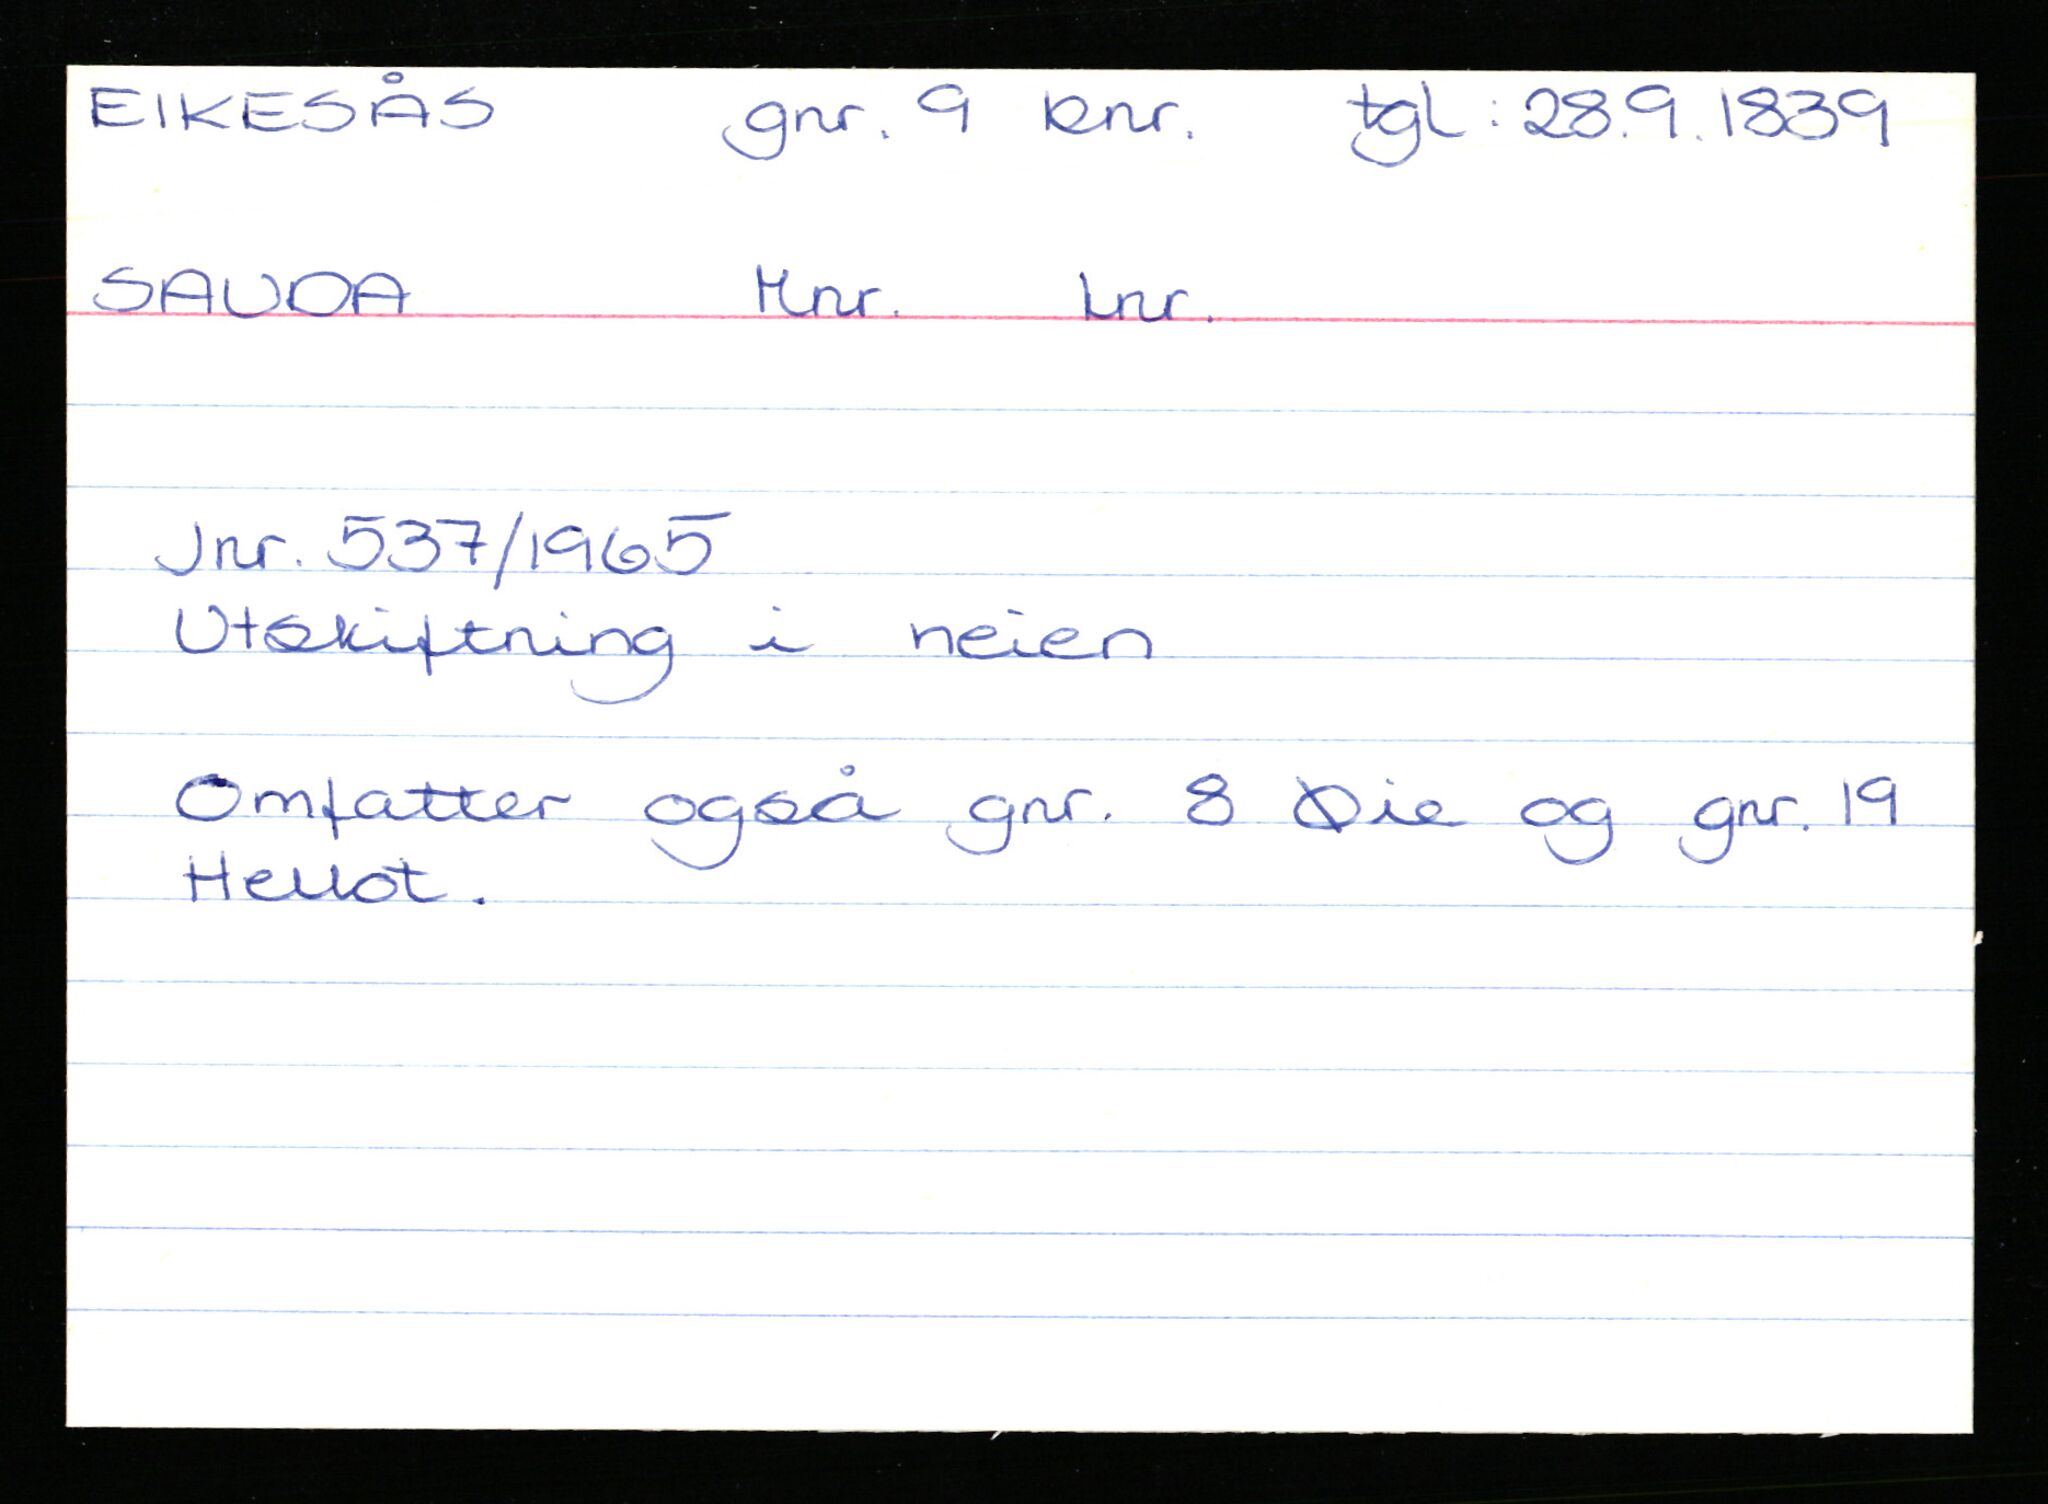 EIKESÅS gnr. 9 bnr. tgl: 28.9.1839
SAUDA Mnr. Lnr.
Jnr. 537/1965
Utskiftning i heien
Omfatter også gnr. 8 Øie og gnr. 19
Hellot.